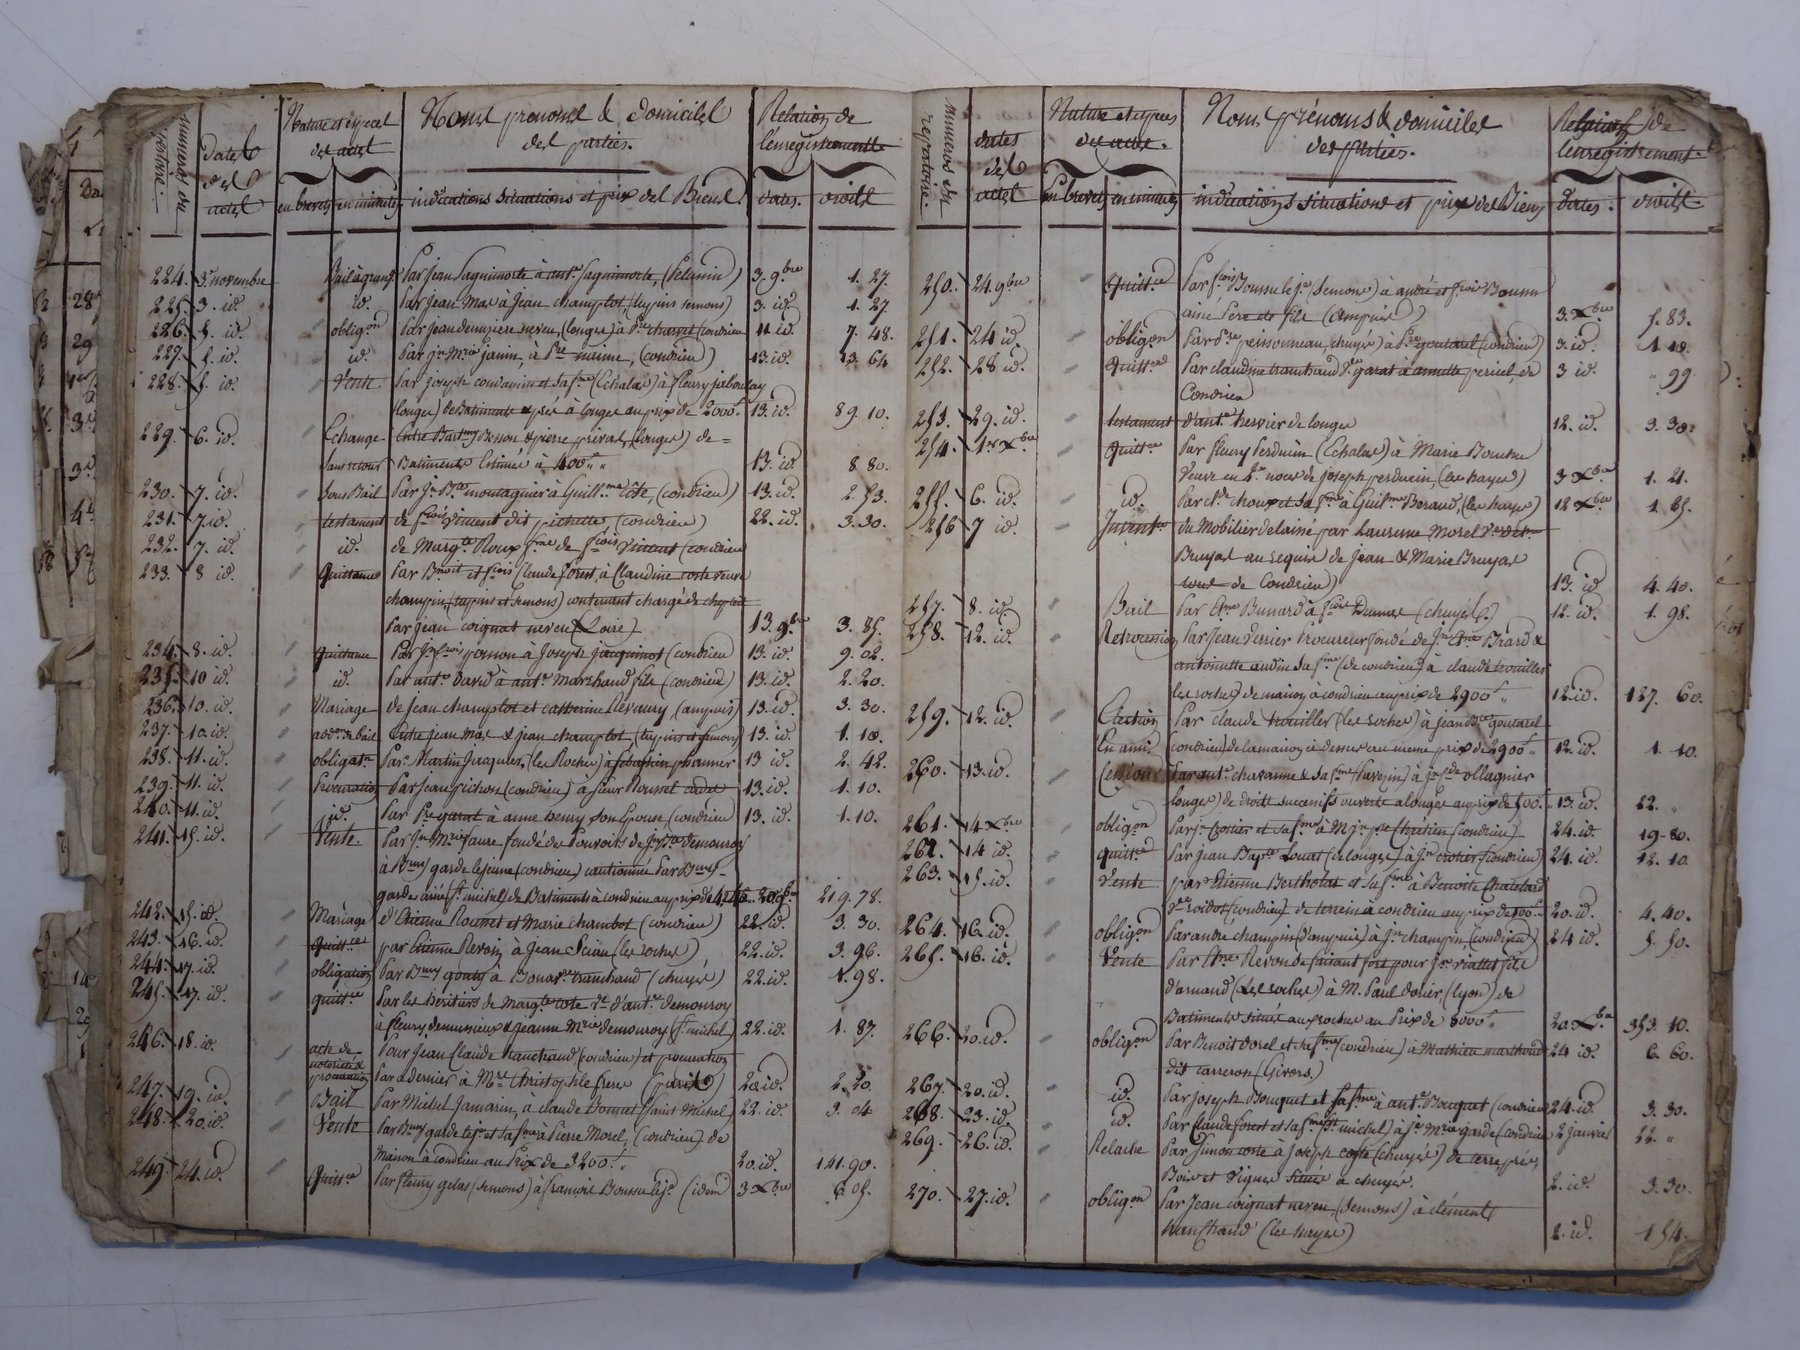 numeros du repertoire.
Dates des actes
Nature et especes des actes
en brevets en minutes
Noms prenoms & domiciles des parties.
indications situations et prix des Biens.
Relation de l'enregistrement
dates. droits
224. 3 novembre Bail à grange Par Jean Saguimorte à ant.e Saguimorte, (Pelussin) 3. 9bre 1. 27.
225. 3. id. id. Par Jean Mas à Jean champlot, (tupins semons) 3. id. 1. 27
226. 5. id. oblig.on Par Jean neveu, (longes) à P.re (Condrieu 11 id. 7. 48.
227. 5. id. id. Par J.n M.rie Janin, à P.re (condrieu) 13. id. 13. 64
228. 5. id. Vente. Par Joseph et sa f.me (Echalas) à fleury Jaboulay
(longes) de Batiments & prés à longes au prix de 2000f 13. id. 89. 10.
229. 6. id. Echange Entre Bart.my Besson & pierre prival, (longes) de =
sans retour Batiments Estimés à 400f 13. id. 8 80.
230. 7. id. sous Bail Par J.n B.te à Guill.me côte, (condrieu) 13. id. 2. 53.
231. 7. id. testament de f.çois Vincent dit pichette, (condrieu) 22. id. 3. 30.
232. 7. id. id. de Marg.te Roux f.me de f.çois Vincent (condrieu
233. 8 id. Quittance Par B.noit et f.çois Claude forest, à Claudine coste veuve
champin, (tupins et semons) contenant charge de cheptel
Par Jean Coignat neveu (Loire) 13. 9bre 3. 85.
234. 8. id. quittance Par J.n f.çois à Joseph Jacquinot (condrieu 13. id. 9. 02.
235. 10 id. id. Par ant.e David à ant.e Marchand fils (condrieu) 13. id. 2. 20.
236. 10. id. Mariage de Jean champlot et catherine Revaury (ampuis) 13. id. 3. 30.
237. 10. id. add.on de bail Entre Jean Mas & Jean champlot, (tupins et semons) 13. id 1. 10.
238. 11. id. obligat.n Par Martin Jacquier, (les Roches) à Sebastien 13 id. 2. 42.
239. 11. id. Procuration Par Jean pichon (condrieu) à sieur Rousset cadet 13. id. 1. 10.
240. 11. id. id. Par P.re garat à anne henry son Epouse (condrieu) 13. id. 1. 10.
241. 15. id. Vente. Par J.n M.rie faure fondé de Pouvoirs de J.n B.te demourroy
à B.my garde le jeune (condrieu) cautionné Par B.my
garde ainé (S.t michel) de Batiments à condrieu au prix de 219. 78.
242. 15. id. Mariage d'Etienne Rousset et Marie chambot (condrieu) 22. id. 3. 30.
243. 16. id. quitt.ce par Etienne Revon, à Jean Sicau (les roches) 22. id. 3. 96.
244. 17. id. obligation Par B.my gouty à Bonav.re tranchand (chuyes) 22. id. 1. 98.
245. 17. id. quitt.ce Par les héritiers de Marg.te cote V.e d'ant.e demourroy
à fleury & Jeanne M.rie demouroy (S.t michel) 22. id. 1. 87.
246. 18. id. acte de notorieté & procuration Pour Jean Claude tranchand (condrieu) et procuration
Par ce dernier à M.re Christophle frere (paris) 22. id. 2. 20.
247. 19. id. Bail Par Michel Jamarin, à claude Donnet (Saint Michel) 22. id. 3. 04
248. 20. id. Vente Par B.my garde le j.e et sa f.me à Pierre Morel, (condrieu) de
Maison à condrieu au Prix de 3200f 20. id. 141. 90.
249. 24. id. Quitt.ce Par fleury gelas (semons) à francois Boussu le j.e (idem) 3 Xbre 6. 05.
numeros du repertoire.
dates des actes
Nature et especes des actes.
En brevets en minutes
Noms prénoms & domiciles des parties.
indications situations et prix des Biens
Relation de l'enregistrement
dates. droits.
250. 24. 9bre Quitt.ce Par f.çois Boussu le j.e (Semons) à andré et f.çois Boussu
ainé Pere et fils (Ampuis) 3. Xbre 5. 83.
251. 24 id. oblig.on Par P.re peissonneau, (chuyes) à P.re goutarel (condrieu) 3. id. 1. 18.
252. 28 id. Quitt.ce Par claudine tranchand V.e garat à annette de 3 id. " 99
Condrieu
253. 29. id. testament d'ant.e hervier de longes 12. id. 3. 30.
254. 1er Xbre Quitt.ce Par fleury Perdruin (Echalas) à Marie
Veuve en 1.e noce de Joseph perdruin (les hayes) 3 Xbre 1. 21.
255. 6. id. id. Par Cl.de choux et sa f.me à Guil.me Beraud, (les hayes) 12 Xbre 1. 65.
256 7 id. Invent.re du Mobilier delaissé par Laurence Morel V.e de
Bruyas au requis de Jean & Marie Bruyas
tous de Condrieu) 13. id 4. 40.
257. 8. id. Bail Par Et.ne Bunard à f.çois Dumas (chuyes). 12. id. 1. 98.
258. 12. id. Retrocession Par Jean Vernier Procureur fondé de J.n Brard &
antoinette audin sa f.me (de condrieu) à claude trouiller
les roches) de maison à condrieu au prix de 2900f 12. id. 127. 60.
259. 12. id. Election Par claude trouiller (les roches) à jean B.te goutarel
En ami. (condrieu) de la maison ci dessus au meme prix de 2900f 12. id. 1. 10.
260. 13. id. Cession Par ant.e chavanne & sa f.me (Pavezin) à J.n ollagnier
longes) de droits successifs ouverts à longes au prix de 500f 13. id. 22. "
261. 14 Xbre oblig.on Par J.n Crotier et sa f.me à M.r j.n p.re Chrétien (condrieu) 24. id. 19. 80.
262. 14 id. quitt.ce Par jean Bap.te Louat (de longes) à J.n crotier (condrieu) 24. id. 12. 10.
263. 15. id. Vente par Etienne Bertholat et sa f.me à Benoite Chatelard
V.e voidot (condrieu) de terrein à condrieu au prix de 100f 20. id. 4. 40.
264. 16. id. oblig.on Par andre champin (d'ampuis) à J.n champin (condrieu) 24 id. 5. 50.
265. 16. id. Vente Par Et.ne Revon de faisant fort pour J.n viallet fils
d'armand (Les roches) à M. Paul dorier, (lyon) de
Batiments situés aux roches au Prix de 8000f 20. Xbre 353. 10.
266. 20. id. oblig.on Par Benoit dorel et sa f.me (condrieu) à Mathieu marthoud 24 id. 6. 60.
dit carreron (Givors.)
267. 20. id. id. Par joseph Bouquet et sa f.me à ant.e Bouquet (condrieu 24. id. 3. 30.
268. 23. id. id. Par Claude forest et sa f.me (S.t michel) à J.n M.rie garde (condrieu 2 janvier 22. "
269. 26. id. Relache Par Simon coste à Joseph coste (chuyes) de terre prés,
Bois et vignes situés à chuyes. 2. id. 3. 30.
270. 27. id. oblig.on Par Jean coignat neveu, (semons) à clément
tranchand (les hayes) 2. id. 1 54.